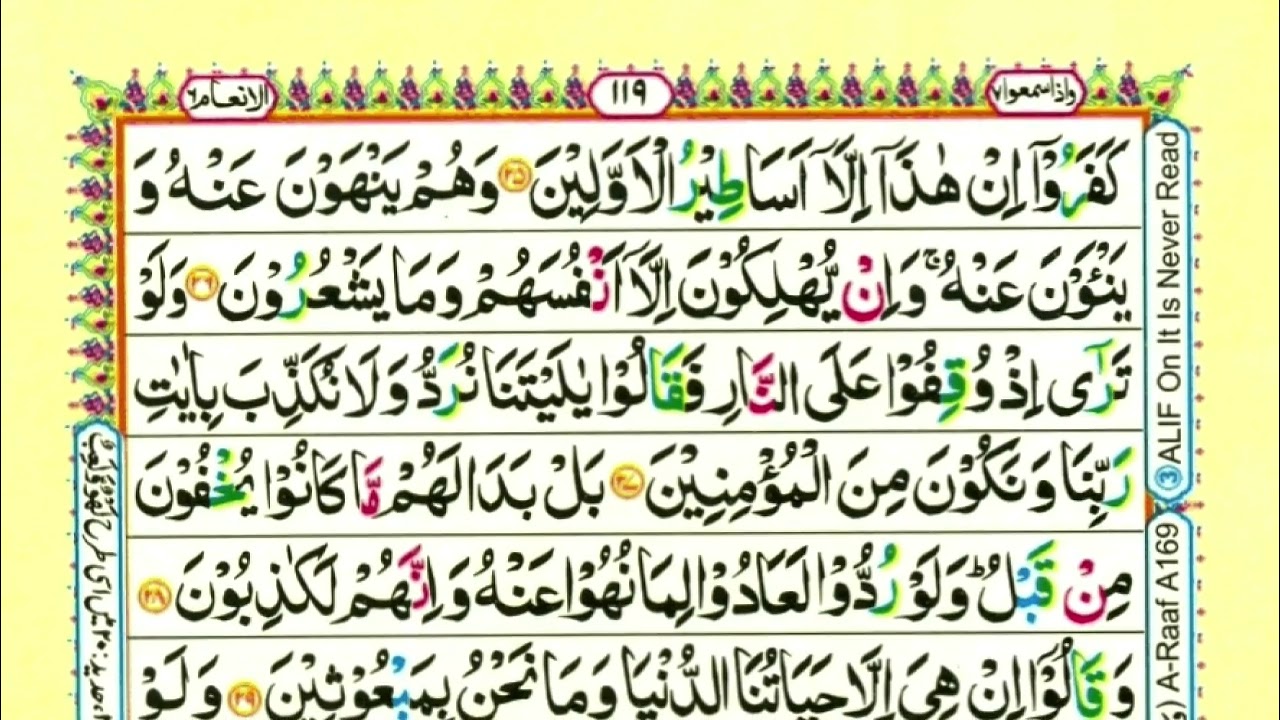 واذاسمعوا۷
۱۱۹
الانعام۶
كَفَرُوْۤا اِنْ هٰذَاۤ اِلَّاۤ اَسَاطِيْرُ الْاَوَّلِيْنَ ۲۵ وَهُمْ يَنْهَوْنَ عَنْهُ وَ
يَنْـَٔوْنَ عَنْهُ ۚ وَاِنْ يُّهْلِكُوْنَ اِلَّاۤ اَنْفُسَهُمْ وَمَا يَشْعُرُوْنَ ۲۶ وَلَوْ
تَرٰۤى اِذْ وُقِفُوْا عَلَى النَّارِ فَقَالُوْا يٰلَيْتَنَا نُرَدُّ وَلَا نُكَذِّبَ بِاٰيٰتِ
رَبِّنَا وَنَكُوْنَ مِنَ الْمُؤْمِنِيْنَ ۲۷ بَلْ بَدَا لَهُمْ مَّا كَانُوْا يُخْفُوْنَ
مِنْ قَبْلُ ؕ وَلَوْ رُدُّوْا لَعَادُوْا لِمَا نُهُوْا عَنْهُ وَاِنَّهُمْ لَكٰذِبُوْنَ ۲۸
وَقَالُوْۤا اِنْ هِىَ اِلَّا حَيَاتُنَا الدُّنْيَا وَمَا نَحْنُ بِمَبْعُوْثِيْنَ ۲۹ وَلَوْ
③ ALIF On It Is Never Read
A-Raaf A169